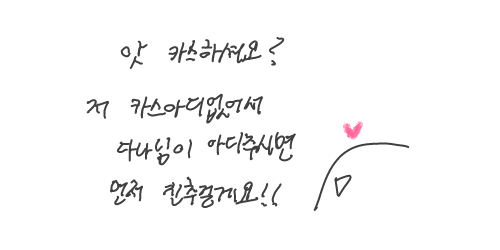 앗 카스하셔요?
저 카스아디없어서
다나님이 아디주시면
먼저 친추할게요!!